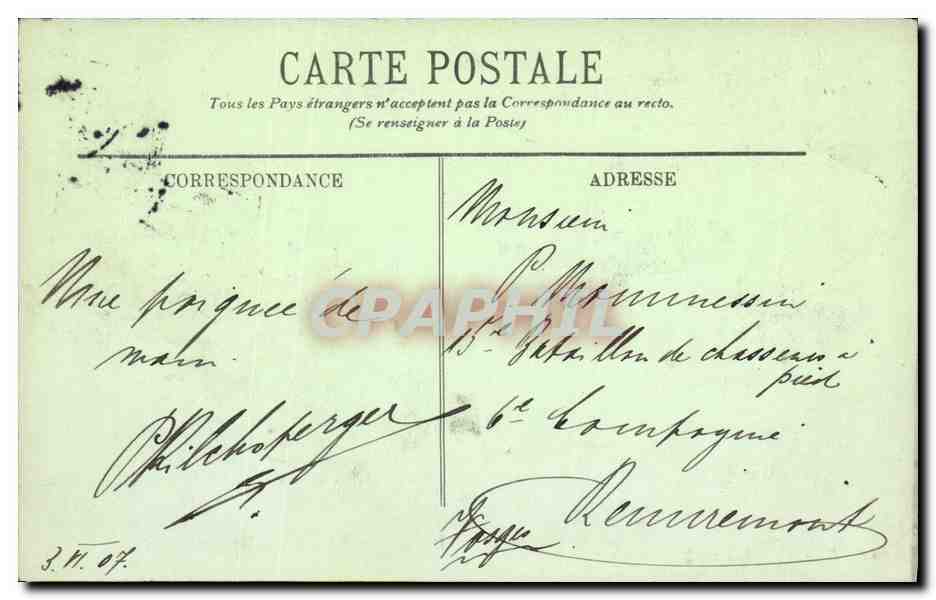 CARTE POSTALE
Tous les Pays étrangers n'acceptent pas la Correspondance au recto.
(Se renseigner à la Poste)
CORRESPONDANCE
Une poignée de
main
3. VI. 07.
ADRESSE
Monsieur
P. Mommessin
15e Bataillon de chasseurs à
pied
6e Compagnie
Remiremont
Vosges
CPAPHIL